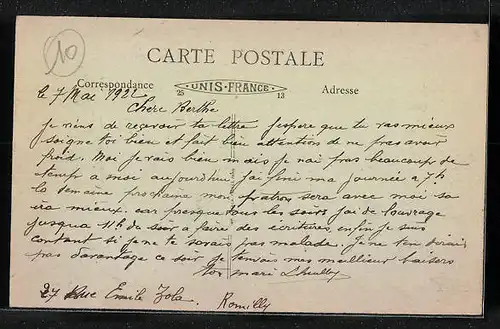 10
CARTE POSTALE
Correspondance
25 UNIS-FRANCE 13
Adresse
le 7 Mai 1922
Chere Berthe
je viens de recevoir ta lettre j'espere que tu vas mieux
soigne toi bien et fait bien attention de ne pas avoir
froid. Moi je vais bien mais je n'ai pas beaucoup de
temps a moi aujourdhui j'ai fini ma journée a 7h
la semaine prochaine mon patron sera avec moi sa
ira mieux. car presque tous les soirs j'ai de l'ouvrage
jusqua 11h du soir a faire des ecritures, enfin je suis
contant si je ne te savais pas malade. je ne ten dirais
pas davantage ce soir je tenvois mes meilleur baisers
ton mari
27 Rue Emile Zola. Romilly